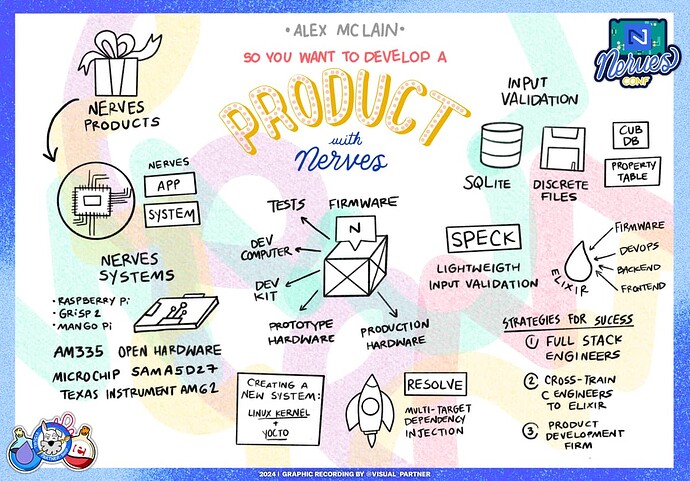 • ALEX MCLAIN •
SO YOU WANT TO DEVELOP A
PRODUCT
with
Nerves
N
Nerves
CONF
NERVES
PRODUCTS
NERVES
APP
SYSTEM
NERVES
SYSTEMS
• RASPBERRY Pi
• GRiSP 2
• MANGO Pi
AM335 OPEN HARDWARE
MICROCHIP SAMA5D27
TEXAS INSTRUMENT AM62
TESTS
FIRMWARE
N
DEV
COMPUTER
DEV
KIT
PROTOTYPE
HARDWARE
PRODUCTION
HARDWARE
CREATING A
NEW SYSTEM:
LINUX KERNEL
+
YOCTO
RESOLVE
MULTI-TARGET
DEPENDENCY
INJECTION
INPUT
VALIDATION
SQLITE
DISCRETE
FILES
CUB
DB
PROPERTY
TABLE
SPECK
LIGHTWEIGTH
INPUT VALIDATION
ELIXIR
FIRMWARE
DEVOPS
BACKEND
FRONTEND
STRATEGIES FOR SUCESS
1 FULL STACK
ENGINEERS
2 CROSS-TRAIN
C ENGINEERS
TO ELIXIR
3 PRODUCT
DEVELOPMENT
FIRM
2024 | GRAPHIC RECORDING BY @VISUAL_PARTNER